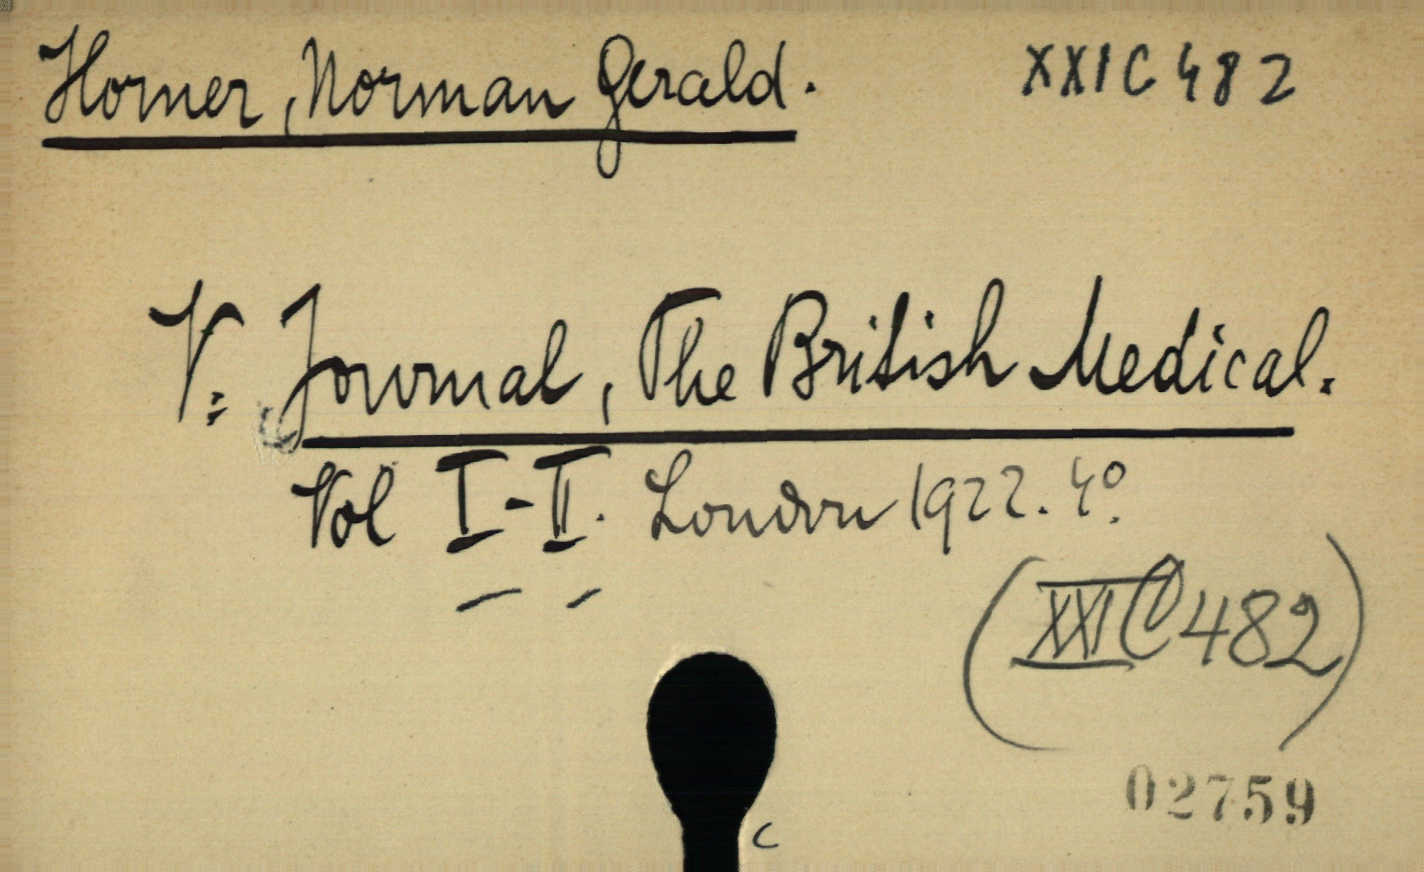 Horner, Norman Gerald. XXI C 482
V: Journal, The British Medical.
Vol I-II. London 1922. 4º.
(XXI C 482)
02759
C